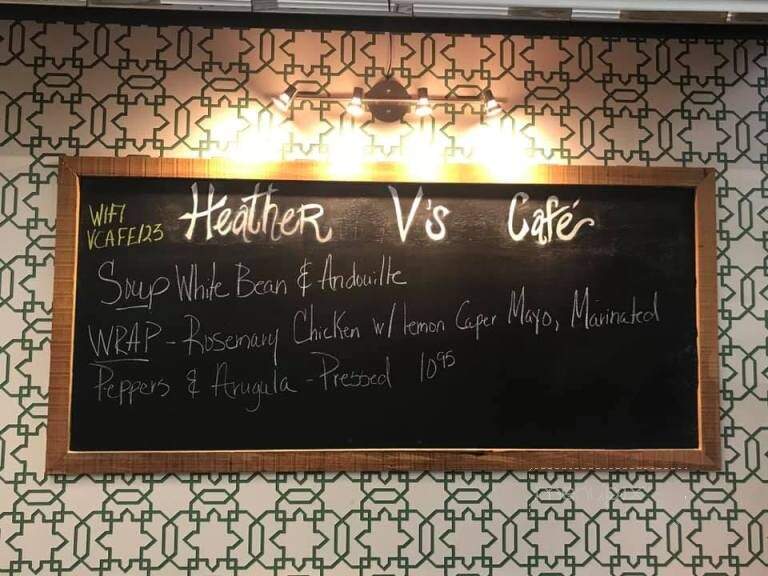 WIFI
VCAFE123
Heather V's Café
Soup White Bean & Andouille
WRAP - Rosemary Chicken w/ lemon Caper Mayo, Marinated
Peppers & Arugula - Pressed 10⁹⁵